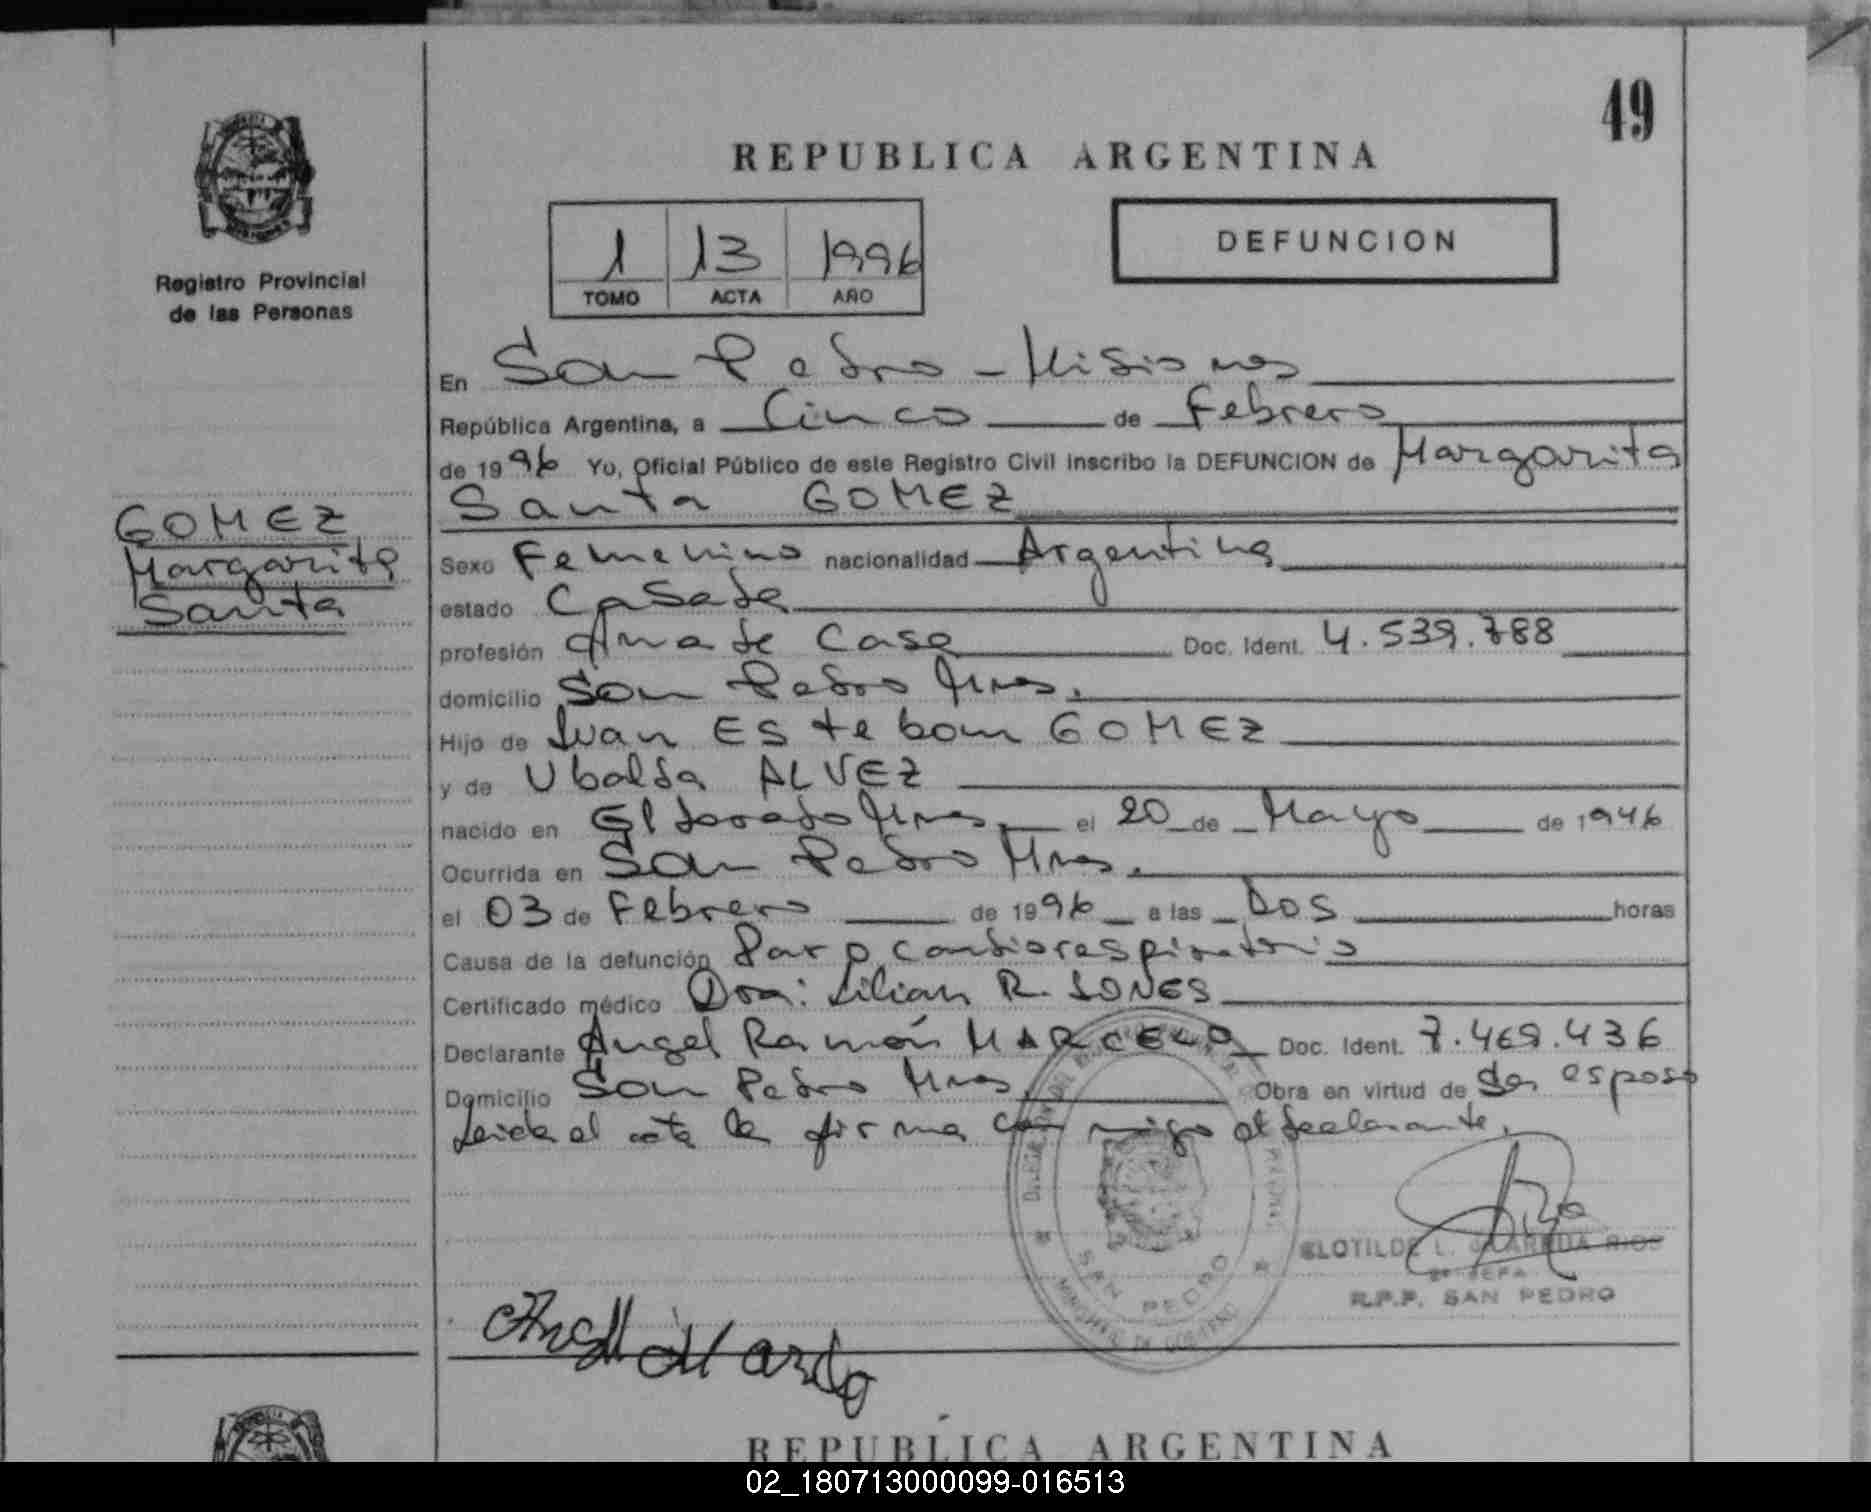 49
REPUBLICA ARGENTINA
Registro Provincial
de las Personas
1 13 1996
TOMO ACTA AÑO
DEFUNCION
En San Pedro - Misiones
República Argentina, a Cinco de Febrero
de 1996 Yo, Oficial Público de este Registro Civil inscribo la DEFUNCION de Margarita
Santa GOMEZ
GOMEZ
Margarita
Santa
Sexo Femenino nacionalidad Argentina
estado Casada
profesión Ama de Casa Doc. Ident. 4.539.788
domicilio San Pedro Mnes.
Hijo de Juan Esteban GOMEZ
y de Ubalda ALVEZ
nacido en Eldorado Mnes. el 20 de Mayo de 1946
Ocurrida en San Pedro Mnes.
el 03 de Febrero de 1996 a las Dos horas
Causa de la defunción Paro cardiorespiratorio
Certificado médico Dra: Lilian R. JONES
Declarante Angel Ramón MARCELO Doc. Ident. 7.469.436
Domicilio San Pedro Mnes. Obra en virtud de Ser esposo
Leida el acta la firma con migo el declarante.
SAN PEDRO
MINISTERIO DE GOBIERNO
CLOTILDE L. RIOS
R.P.P. SAN PEDRO
REPUBLICA ARGENTINA
02_180713000099-016513